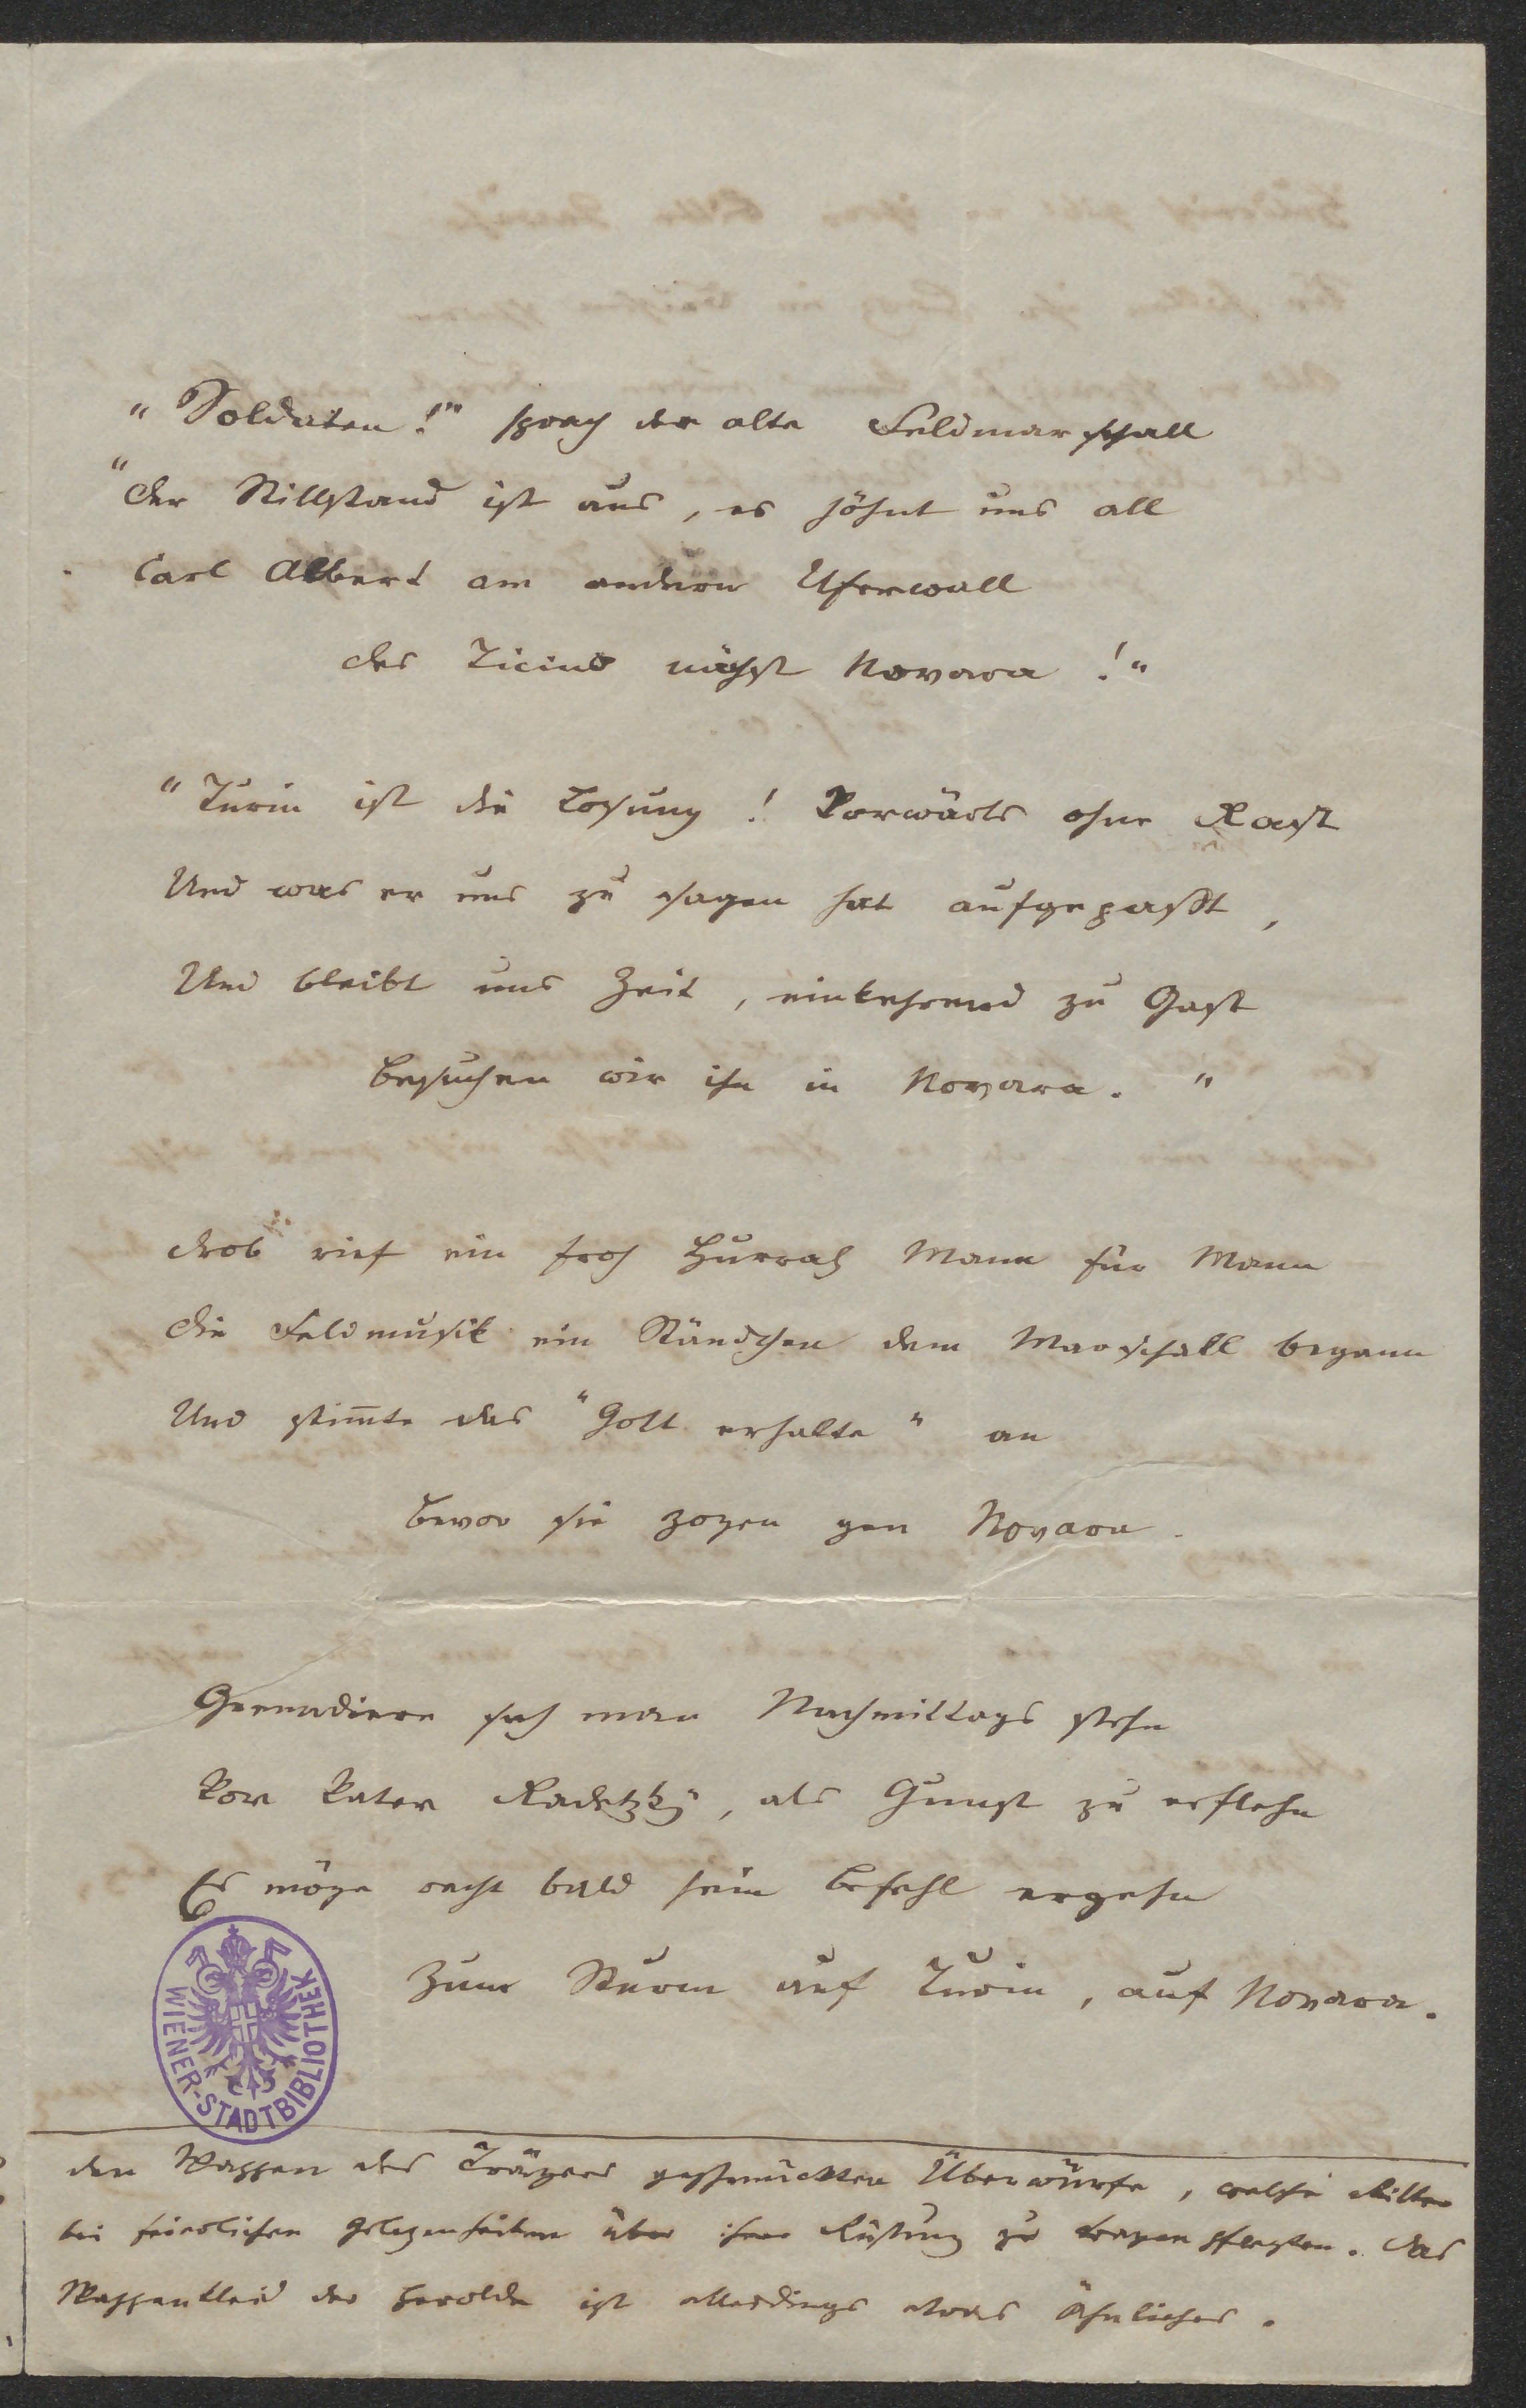 "Soldaten!" sprach der alte Feldmarschall
"Der Stillstand ist aus, es höhnt uns all
Carl Albert am andern Uferwall
Des Ticino nächst Novara!"
"Turin ist die Losung! Vorwärts ohne Rast
Und was er uns zu sagen hat aufgepaßt,
Und bleibt uns Zeit, einkehrend zu Gast
Besuchen wir ihn in Novara."
Drob rief ein froh Hurrah Mann für Mann
Die Feldmusik ein Ständchen dem Marschall begann
Und stim̄te das "Gott erhalte" an
Bevor sie zogen gen Novara.
Grenadiere sah man Nachmittags stehn
Vor Vater Radetzky, als Gunst zu erflehn
Es möge recht bald sein Befehl ergehn
Zum Sturm auf Turin, auf Novara.
WIENER-STADTBIBLIOTHEK
den Wappen des Trägers geschmückten Überwürfe, welche Ritter
bei feierlichen Gelegenheiten über ihrer Rüstung zu tragen pflegten. Das
Wappenkleid der Herolde ist allerdings etwas Ähnliches.